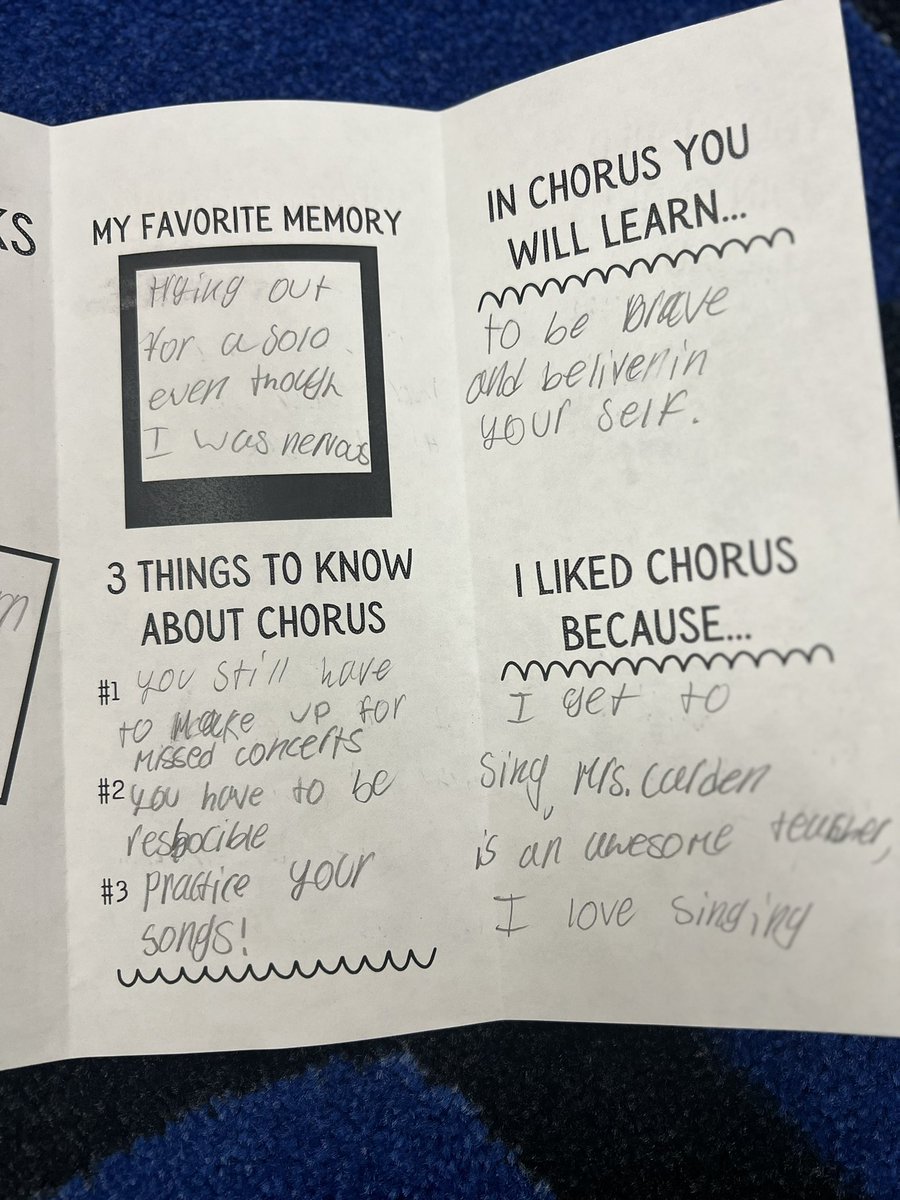 KS
m
MY FAVORITE MEMORY
trying out
for a solo
even though
I was nervous
3 THINGS TO KNOW
ABOUT CHORUS
#1 you still have
to make up for
missed concerts
#2 you have to be
resbocible
#3 practice your
songs!
IN CHORUS YOU
WILL LEARN...
to be brave
and beliver in
your self.
I LIKED CHORUS
BECAUSE...
I get to
sing, Mrs. Carden
is an awesome teacher,
I love singing